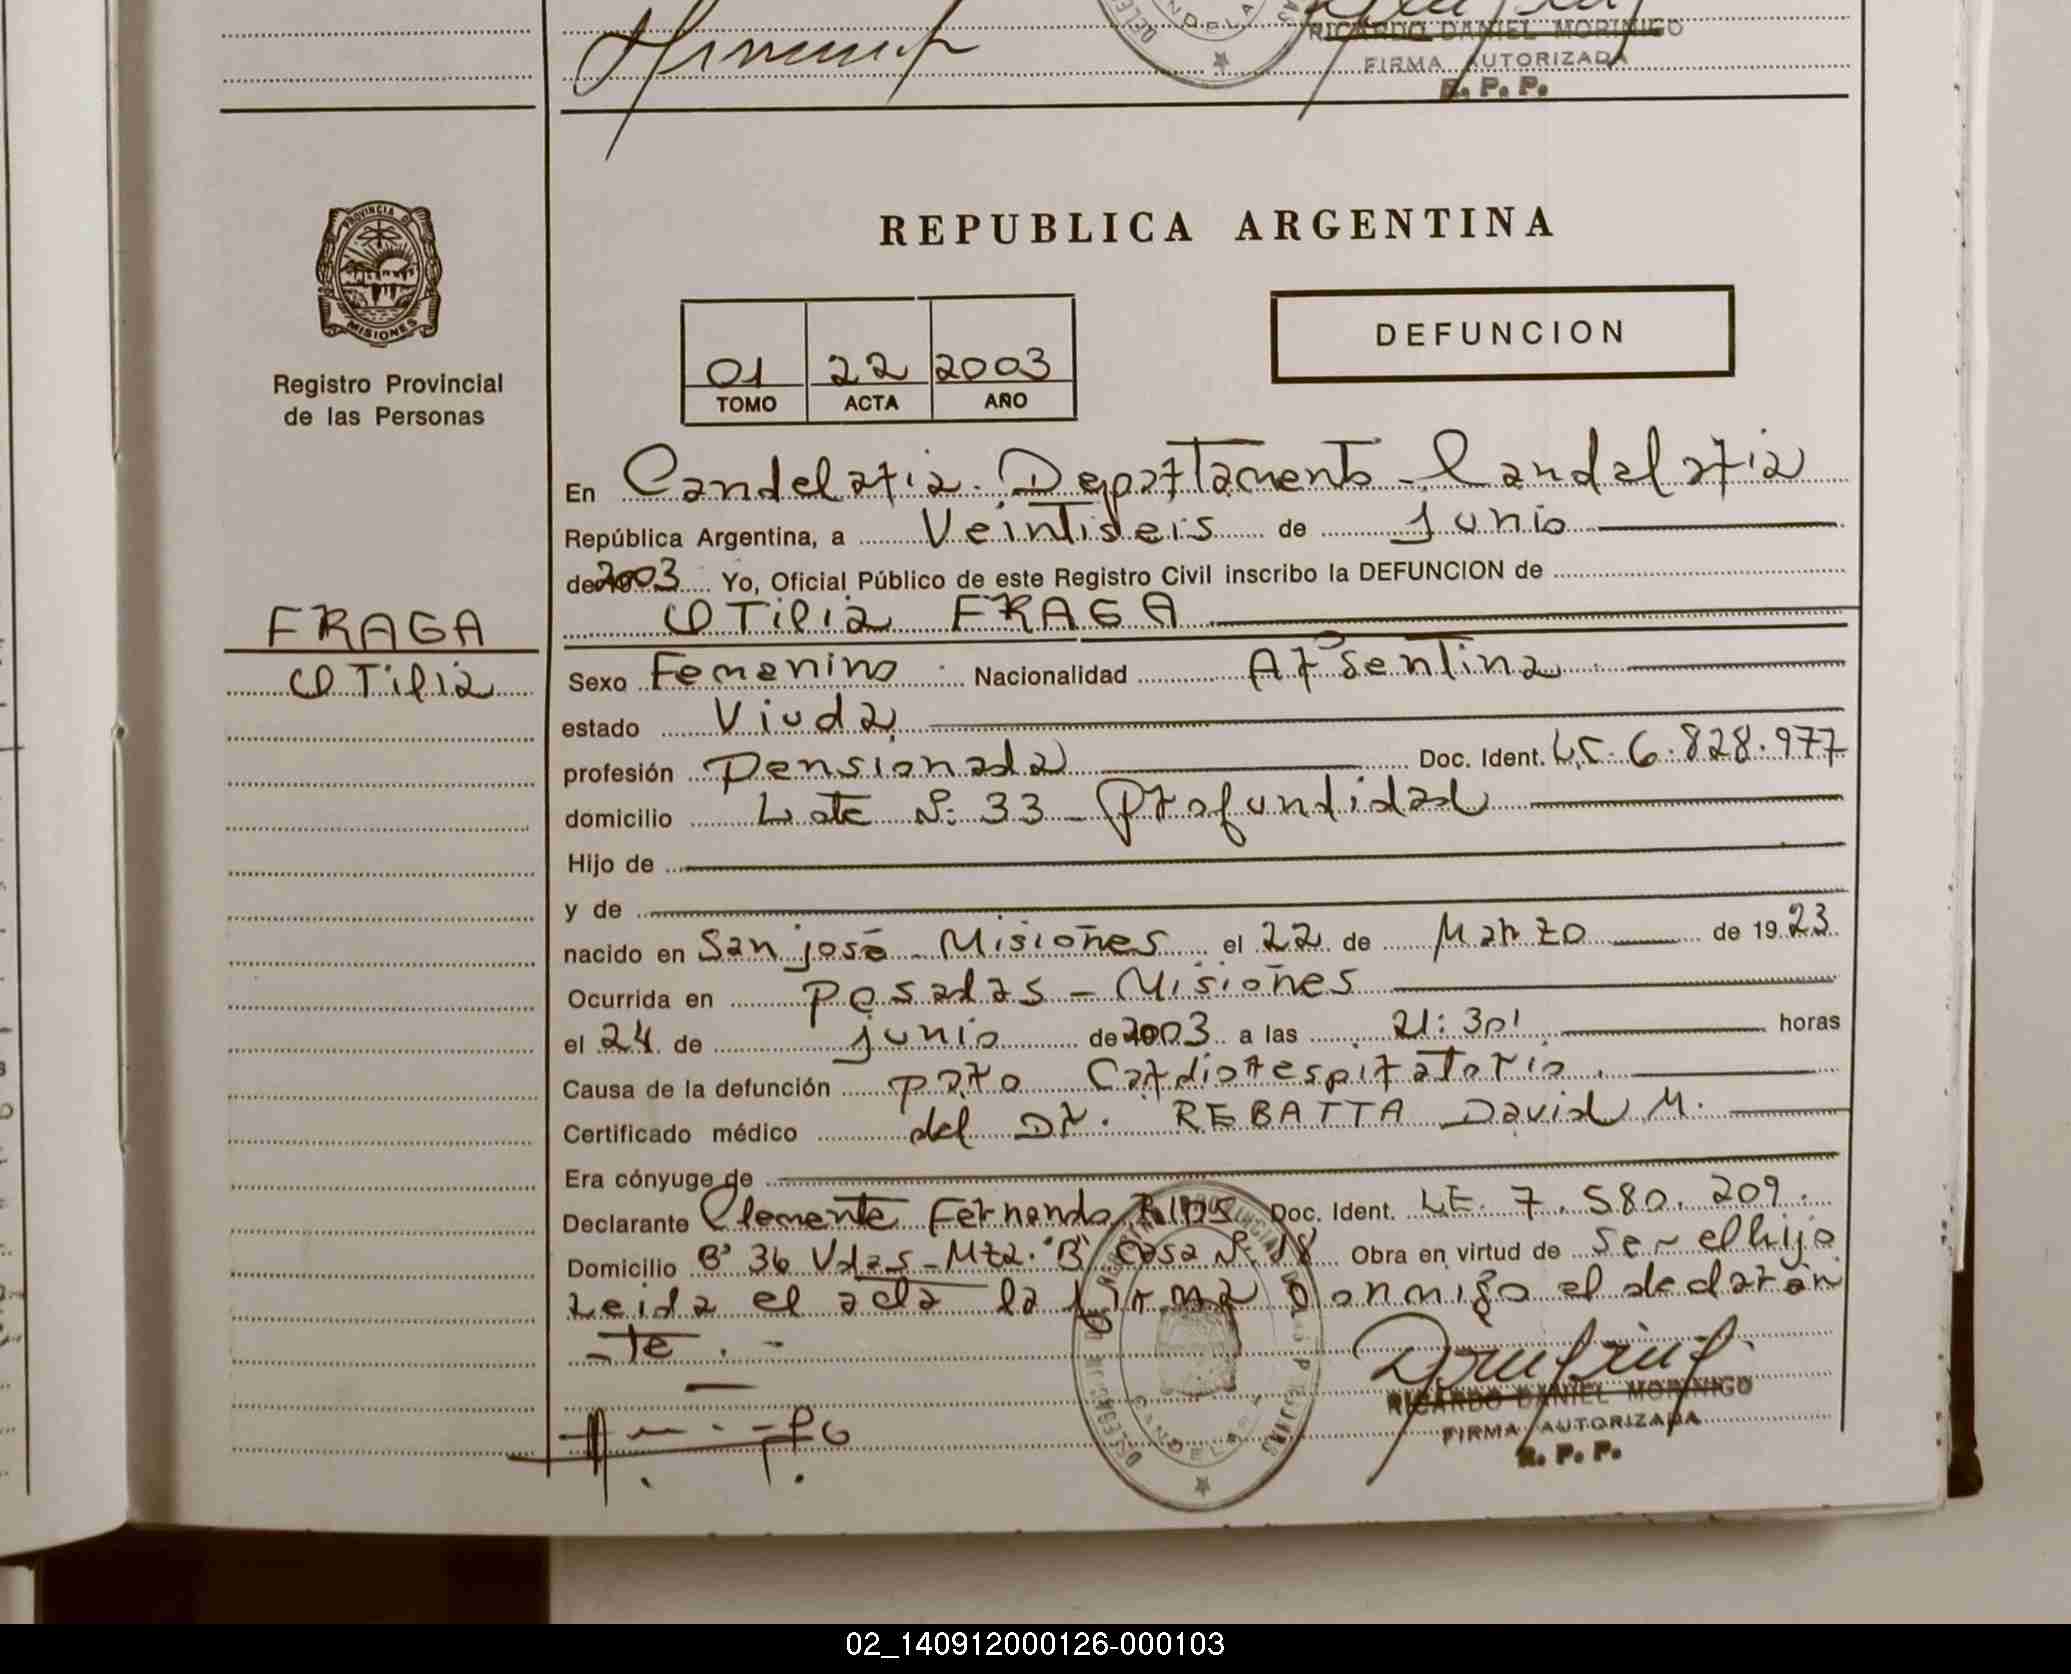 RICARDO DANIEL MORINIGO
FIRMA AUTORIZADA
R. P. P.
PROVINCIA DE
MISIONES
Registro Provincial
de las Personas
REPUBLICA ARGENTINA
DEFUNCION
01 22 2003
TOMO ACTA AÑO
En Candelaria - Departamento - Candelaria
República Argentina, a Veintiseis de junio
de 2003 Yo, Oficial Público de este Registro Civil inscribo la DEFUNCION de
OTilia FRAGA
FRAGA
OTilia
Sexo Femenino Nacionalidad Argentina
estado Viuda
profesión Pensionada Doc. Ident. L.C. 6.828.977
domicilio Lote Nº 33 - Profundidad
Hijo de
y de
nacido en San josé - Misiones el 22 de Marzo de 1923
Ocurrida en Posadas - Misiones
el 24 de junio de 2003 a las 21:30' horas
Causa de la defunción paro Cardiorrespiratorio.
Certificado médico del Dr. REBATTA David M.
Era cónyuge de
Declarante Clemente Fernando RIOS Doc. Ident. LE. 7.580.209.
Domicilio Bº 36 Vdas - Mza. "B" Casa Nº 18 Obra en virtud de ser el hijo
Leida el acta la firma conmigo el declaran
-te. -
RICARDO DANIEL MORINIGO
FIRMA AUTORIZADA
R. P. P.
02_140912000126-000103